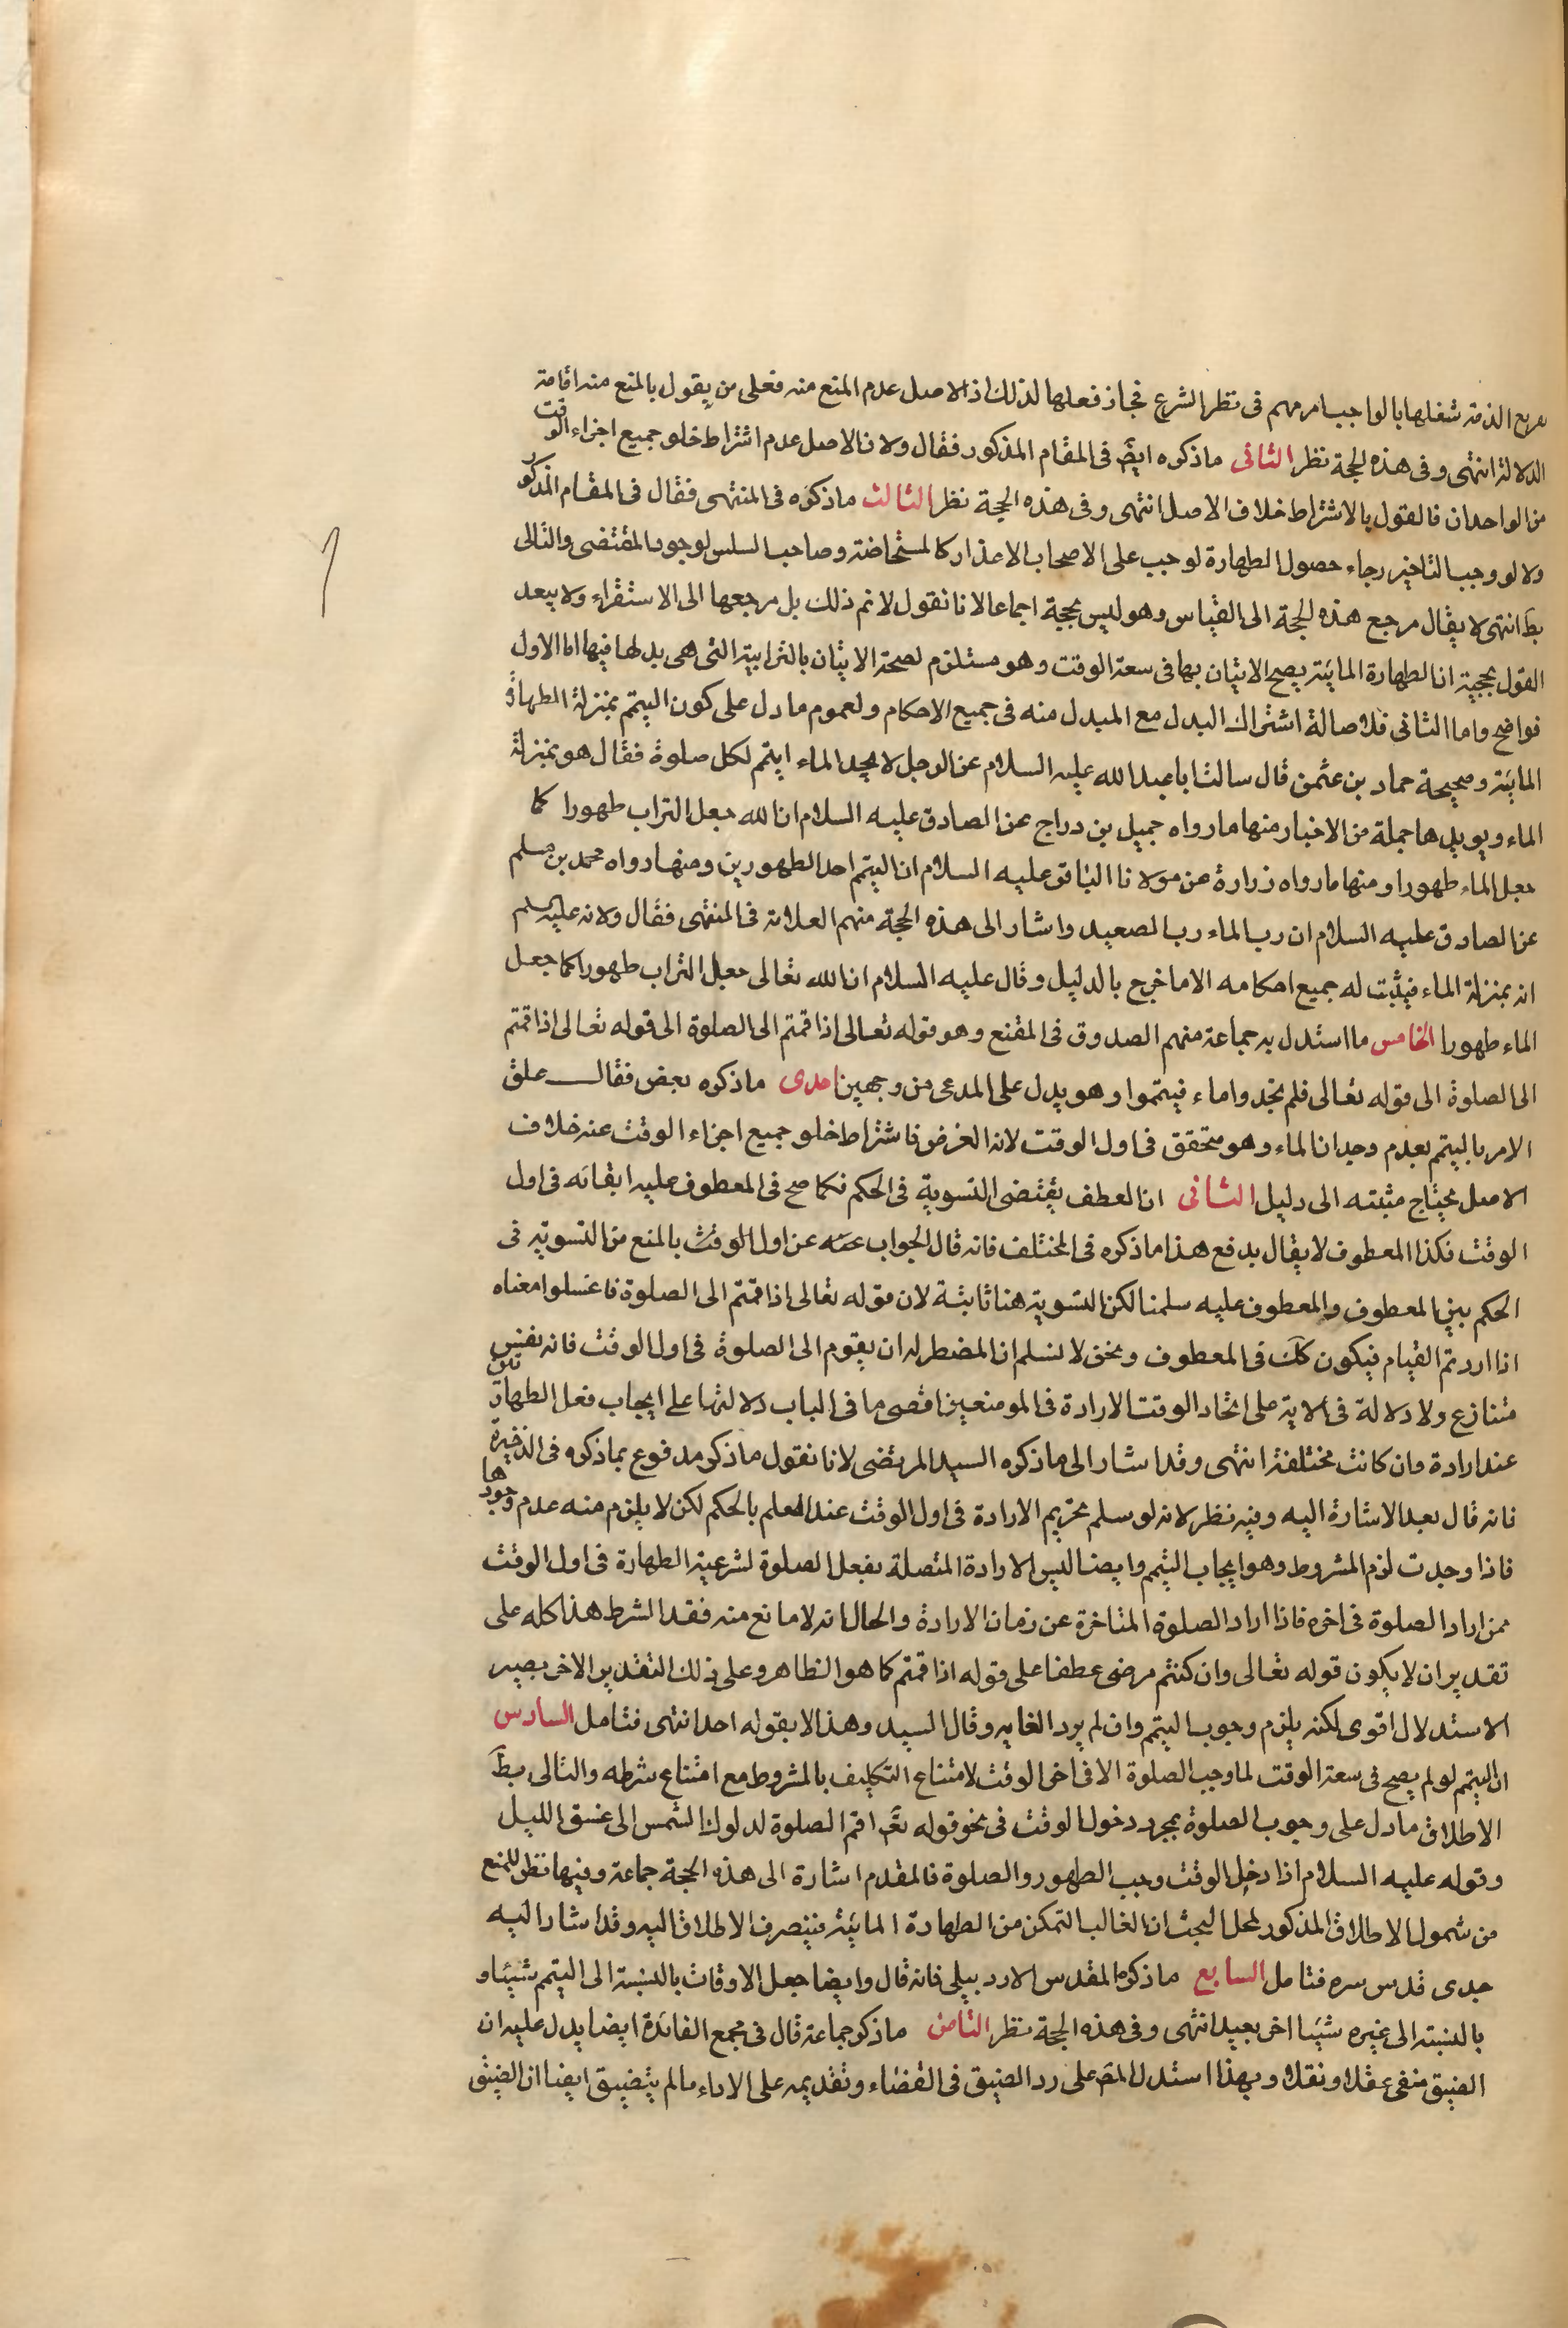 الذمة شغلها بالواجب امر مهم فى نظر الشرع فجاز فعلها لذلك اذ الاصل عدم المنع منه فعلى من يقول بالمنع منه اقامة
الدلالة انتهى وفى هذه الحجة نظر الثانى ماذكره ايضَ فى المقام المذكور فقال ولان الاصل عدم اشتراط خلو جميع اجزاء الوقت
من الواحدان فالقول بالاشتراط خلاف الاصل انتهى وفى هذه الحجة نظر الثالث ماذكره فى المنتهى فقال فى المقام المذكور
ولا لو وجب التاخير رجاء حصول الطهارة لوجب على الاصحاب الاعذار كالمستحاضة وصاحب السلس لوجود المقتضى والتالى
بطَ انتهى لا يقال مرجع هذه الحجة الى القياس وهو ليس بحجة اجماعا لانا نقول لا نم ذلك بل مرجعها الى الاستقراء ولا يبعد
القول بحجيته ان الطهارة المائية يصح الاتيان بها فى سعة الوقت وهو مستلزم لصحة الاتيان بالترابية التى هى بدلها فيها اما الاول
فواضح واما الثانى فلاصالة اشتراك البدل مع المبدل منه فى جميع الاحكام ولعموم مادل على كون التيمم بمنزلة الطهارة
المائية وصحيحة حماد بن عثمن قال سالت ابا عبد الله عليه السلام عن الرجل لا يجد الماء ايتمم لكل صلوة فقال هو بمنزلة
الماء ويويدها جملة من الاخبار منها مارواه جميل بن دراج عن الصادق عليه السلام ان الله جعل التراب طهورا كما
جعل الماء طهورا ومنها مارواه زرارة عن مولانا الباقر عليه السلام ان التيمم احد الطهورين ومنها رواه محمد بن مسلم
عن الصادق عليه السلام ان رب الماء رب الصعيد واشار الى هذه الحجة منهم العلامة فى المنتهى فقال ولانه عليه سلم
انه بمنزلة الماء فيثبت له جميع احكامه الا ما خرج بالدليل وقال عليه السلام ان الله تعالى جعل التراب طهورا كما جعل
الماء طهورا الخامس ما استدل به جماعة منهم الصدوق فى المقنع وهو قوله تعالى اذا قمتم الى الصلوة الى قوله تعالى اذا قمتم
الى الصلوة الى قوله تعالى فلم تجدوا ماء فيتمموا وهو يدل على المدعى من وجهين احدى ماذكره بعض فقال علق
الامر بالتيمم بعدم وجدان الماء وهو متحقق فى اول الوقت لانه الغرض فاشتراط خلو جميع اجزاء الوقت عنه خلاف
الاصل يحتاج مثبته الى دليل الثانى ان العطف يقتضى التسوية فى الحكم فكما صح فى المعطوف عليه ايقاعه فى اول
الوقت فكذا المعطوف لا يقال يدفع هذا ماذكره فى المختلف فانه قال الجواب عنه عن اول الوقت بالمنع من التسوية فى
الحكم بين المعطوف والمعطوف عليه سلمنا لكن التسوية هنا ثابتة لان قوله تعالى اذا قمتم الى الصلوة فاغسلوا معناه
اذا اردتم القيام فيكون كك فى المعطوف ونحن لا نسلم ان المضطر له ان يقوم الى الصلوة فى اول الوقت فانه نفس
متنازع ولا دلالة فى الاية على اتحاد الوقت الارادة فى الموضعين اقصى ما فى الباب دلالتها على ايجاب فعل الطهارة
عند ارادة وان كانت مختلفة انتهى وقد اشار الى ماذكره السيد المرتضى لانا نقول ماذكر مدفوع بماذكره فى الذخيرة
فانه قال بعد الاشارة اليه وفيه نظر لانه لو سلم تحريم الارادة فى اول الوقت عند العلم بالحكم لكن لا يلزم منه عدم وجودها
فاذا وجدت لزم المشروط وهو ايجاب التيمم وايضا ليس الارادة المتصلة بفعل الصلوة لشرعية الطهارة فى اول الوقت
ممن اراد الصلوة فى اخره فاذا اراد الصلوة المتاخرة عن زمان الارادة والحال انه لا مانع منه فقد الشرط هذا كله على
تقدير ان لا يكون قوله تعالى وان كنتم مرضى عطفا على قوله اذا قمتم كما هو الظاهر وعلى ذلك التقدير الاخر يصير
الاستدلال اقوى لكنه يلزم وجوب التيمم وان لم يرد الغايه وقال السيد وهذا لا يقوله احد انتهى فتامل السادس
ان التيمم لو لم يصح فى سعة الوقت لما وجب الصلوة الا فى اخر الوقت لامتناع التكليف بالمشروط مع امتناع شرطه والتالى بطَ
الاطلاق مادل على وجوب الصلوة بمجرد دخول الوقت فى نحو قوله تعَ اقم الصلوة لدلوك الشمس الى غسق الليل
وقوله عليه السلام اذا دخل الوقت وجب الطهور والصلوة فالمقدم اشارة الى هذه الحجة جماعة وفيها نظر للمنع
من شمول الاطلاق المذكور لمحل البحث ان الغالب التمكن من الطهارة المائية فينصرف الاطلاق اليه وقد اشار اليه
جدى قدس سره فتامل السابع ماذكره المقدس الاردبيلى فانه قال وايضا جعل الاوقات بالنسبة الى التيمم شيئا و
بالنسبة الى غيره شيئا اخر بعيد انتهى وفى هذه الحجة نظر الثامن ماذكر جماعة قال فى مجمع الفائدة ايضا يدل عليه ان
الضيق منفى عقلا ونقلا وبهذا استدل المصَ على رد الضيق فى القضاء وتقديمه على الاداء مالم يتضيق ايضا ان الضيق